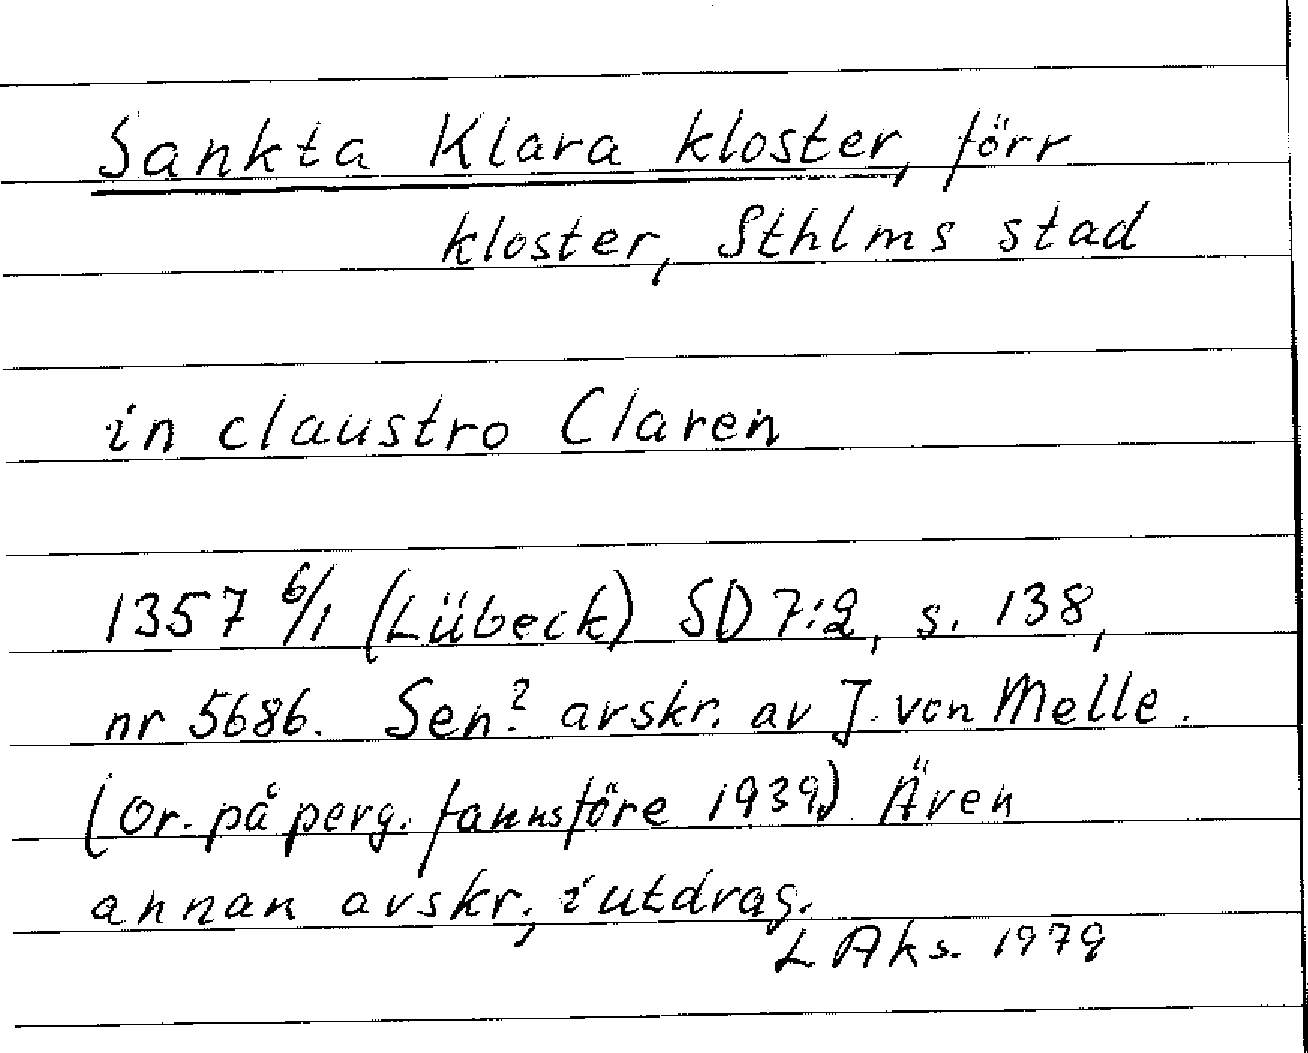 Sankta Klara kloster, förr
kloster, Sthlms stad
in claustro Claren
1357 6/1 (Lübeck) SD 7:2, s. 138,
nr 5686. Sen? avskr. av J. von Melle.
(Or. på perg. fanns före 1939) Även
annan avskr., i utdrag.
L Aks. 1979